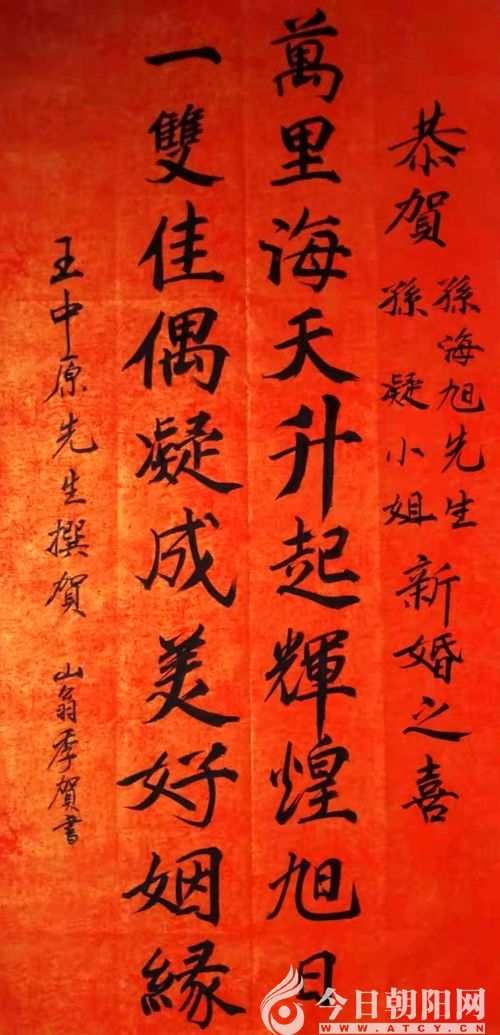 恭賀
孫海旭先生
孫凝小姐
新婚之喜
萬里海天升起輝煌旭日
一雙佳偶凝成美好姻緣
王中原先生撰賀
山翁季賀書
今日朝阳网
WWW.ATCY.CN